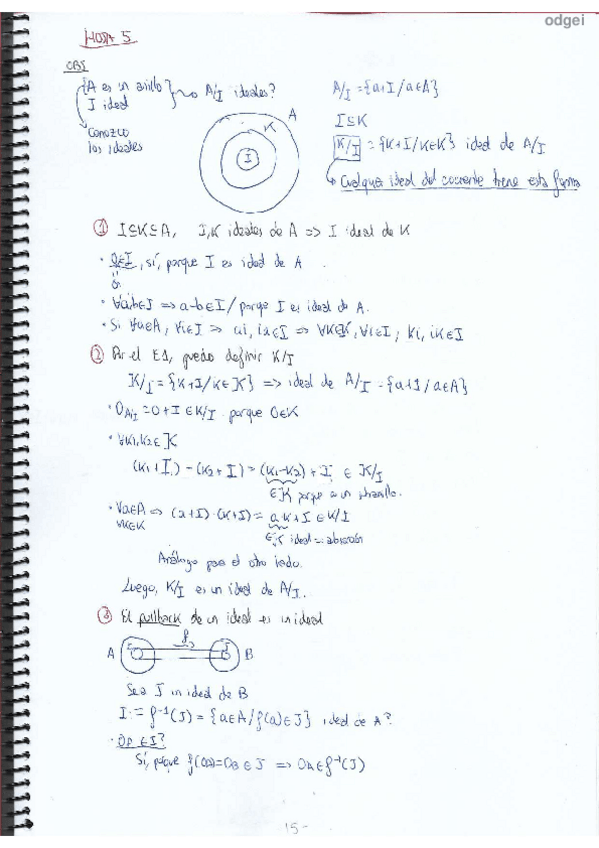 odgei
HOJA 5
OBS
{A es un anillo
I ideal} ⇝ A/I ideales?
Conozco
los ideales
A
K
I
A/I = {a+I / a∈A}
I⊆K
K/I = {k+I / k∈K} ideal de A/I
Cualquier ideal del cociente tiene esta forma
① I⊆K⊆A, I,K ideales de A => I ideal de K
· 0∈I, sí, porque I es ideal de A
· ∀a,b∈I => a-b∈I / porque I es ideal de A.
· Si ∀a∈A, ∀i∈I => ai, ia∈I => ∀k∈K, ∀i∈I, ki, ik∈I
② Por el E1, puedo definir K/I
K/I = {k+I / k∈K} => ideal de A/I = {a+I / a∈A}
· 0A/I = 0+I ∈ K/I porque 0∈K
· ∀k1,k2∈K
(k1+I) - (k2+I) = (k1-k2) + I ∈ K/I
∈K porque es un subanillo.
· ∀a∈A => (a+I)·(k+I) = a·k+I ∈ K/I
∀k∈K
∈K ideal = absorción
Análogo para el otro lado.
Luego, K/I es un ideal de A/I.
③ El pullback de un ideal es un ideal
f
A
I
J
B
Sea J un ideal de B
I := f⁻¹(J) = {a∈A / f(a)∈J} ideal de A?
· 0A ∈ I?
Sí, porque f(0A)=0B ∈ J => 0A∈f⁻¹(J)
15-